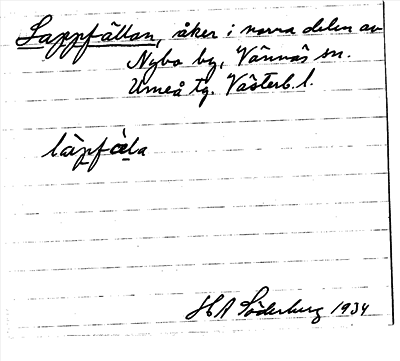 Lappfällan, åker i norra delen av
Nybo by, Vännäs sn.
Umeå tg. Västerb. l.
làpfæ̀la
HA Söderberg 1934